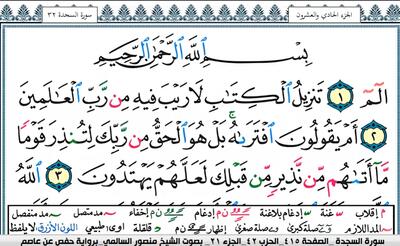 الجزء الحادي والعشرون
سورة السجدة ٣٢
بِسْمِ اللَّهِ الرَّحْمَٰنِ الرَّحِيمِ
الٓمٓ ١ تَنزِيلُ ٱلْكِتَٰبِ لَا رَيْبَ فِيهِ مِن رَّبِّ ٱلْعَٰلَمِينَ
٢ أَمْ يَقُولُونَ ٱفْتَرَىٰهُ ۚ بَلْ هُوَ ٱلْحَقُّ مِن رَّبِّكَ لِتُنذِرَ قَوْمًا
مَّآ أَتَىٰهُم مِّن نَّذِيرٍ مِّن قَبْلِكَ لَعَلَّهُمْ يَهْتَدُونَ ٣ ٱللَّهُ
م إقلاب غنة إدغام بلاغنة إدغام إخفاء مد متصل مد منفصل
المد اللازم صلة كبرى صلة صغرى إظهار قلقلة اوي: طبيعي اللون الأزرق لا يلفظ
سورة السجدة الصفحة ٤١٥ الحزب ٤٢ الجزء ٢١ بصوت الشيخ منصور السالمي برواية حفص عن عاصم